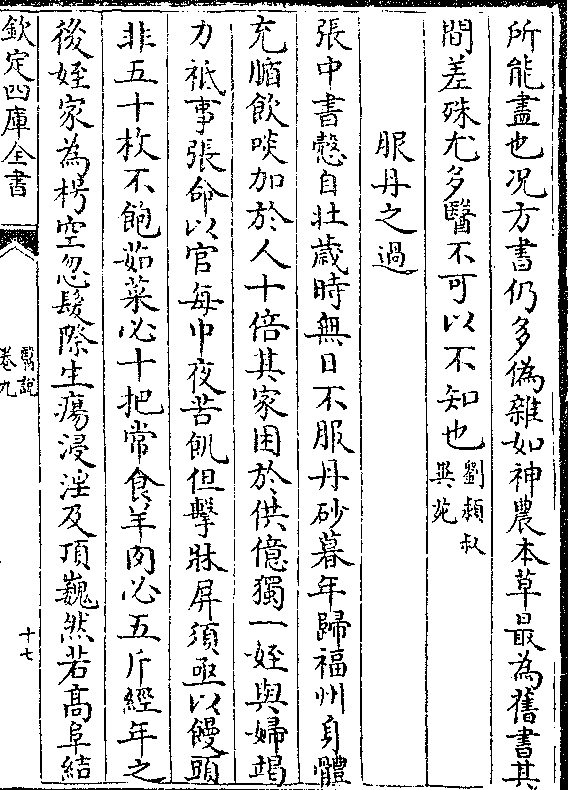 所能盡也况方書仍多偽雜如神農本草最為舊書其
間差殊尤多醫不可以不知也劉頴叔異苑
服丹之過
張中書愨自壯歲時無日不服丹砂暮年歸福州身體
充腯飲啖加於人十倍其家困於供億獨一姪與婦竭
力祗事張命以官每中夜苦飢但擊牀屏須亟以饅頭
非五十枚不飽茹菜必十把常食羊肉必五斤經年之
後姪家為枵空忽髮際生瘍浸淫及頂巍然若高阜結
欽定四庫全書
醫說
卷九
十七